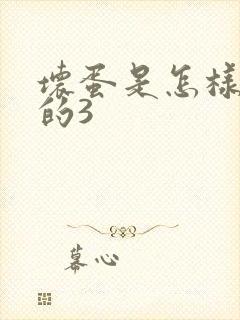 壞蛋是怎樣
的3
幕心